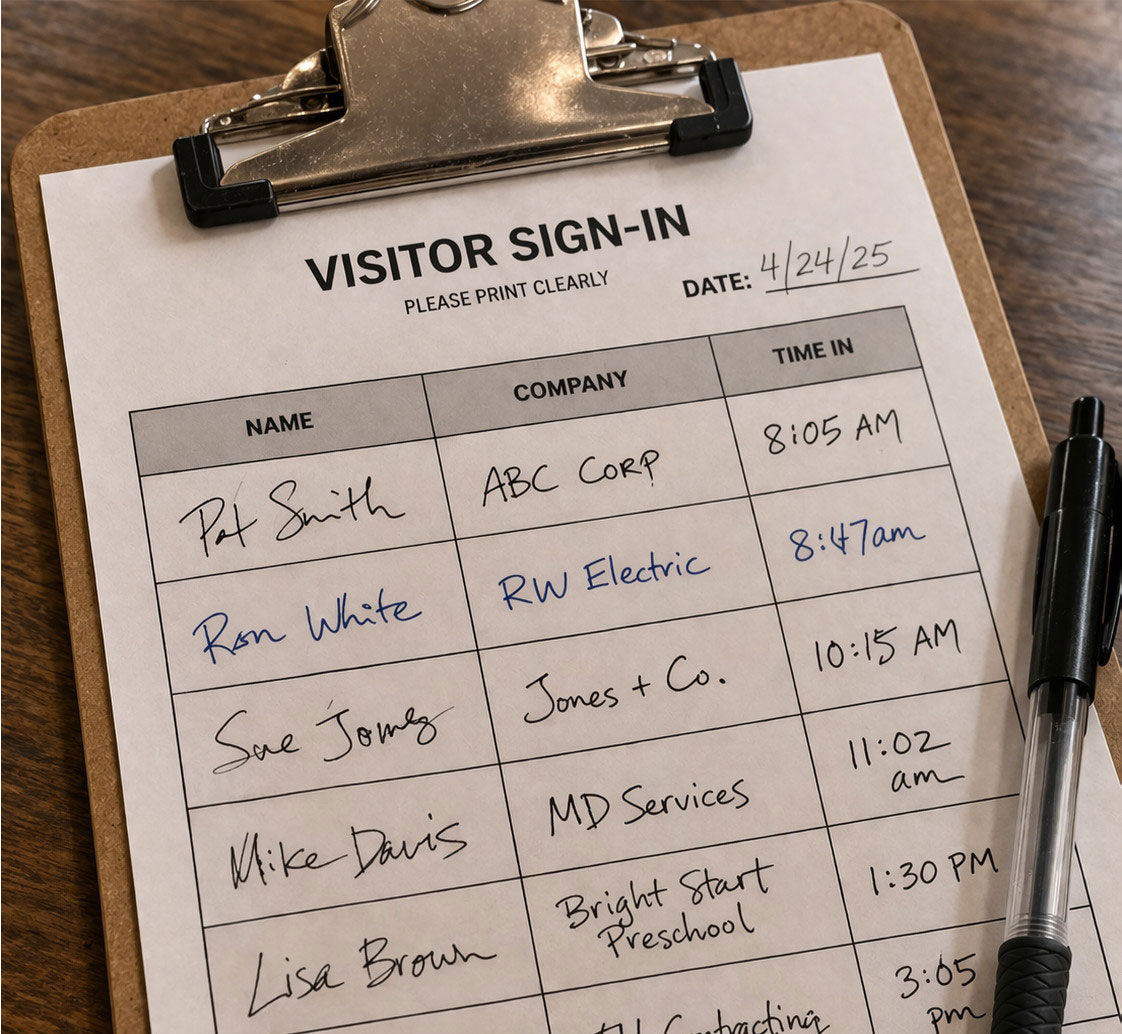 VISITOR SIGN-IN
PLEASE PRINT CLEARLY
DATE: 4/24/25
NAME COMPANY TIME IN
Pat Smith ABC CORP 8:05 AM
Ron White RW Electric 8:47am
Sue Jones Jones + Co. 10:15 AM
Mike Davis MD Services 11:02
am
Lisa Brown Bright Start
Preschool 1:30 PM
Contracting 3:05
pm